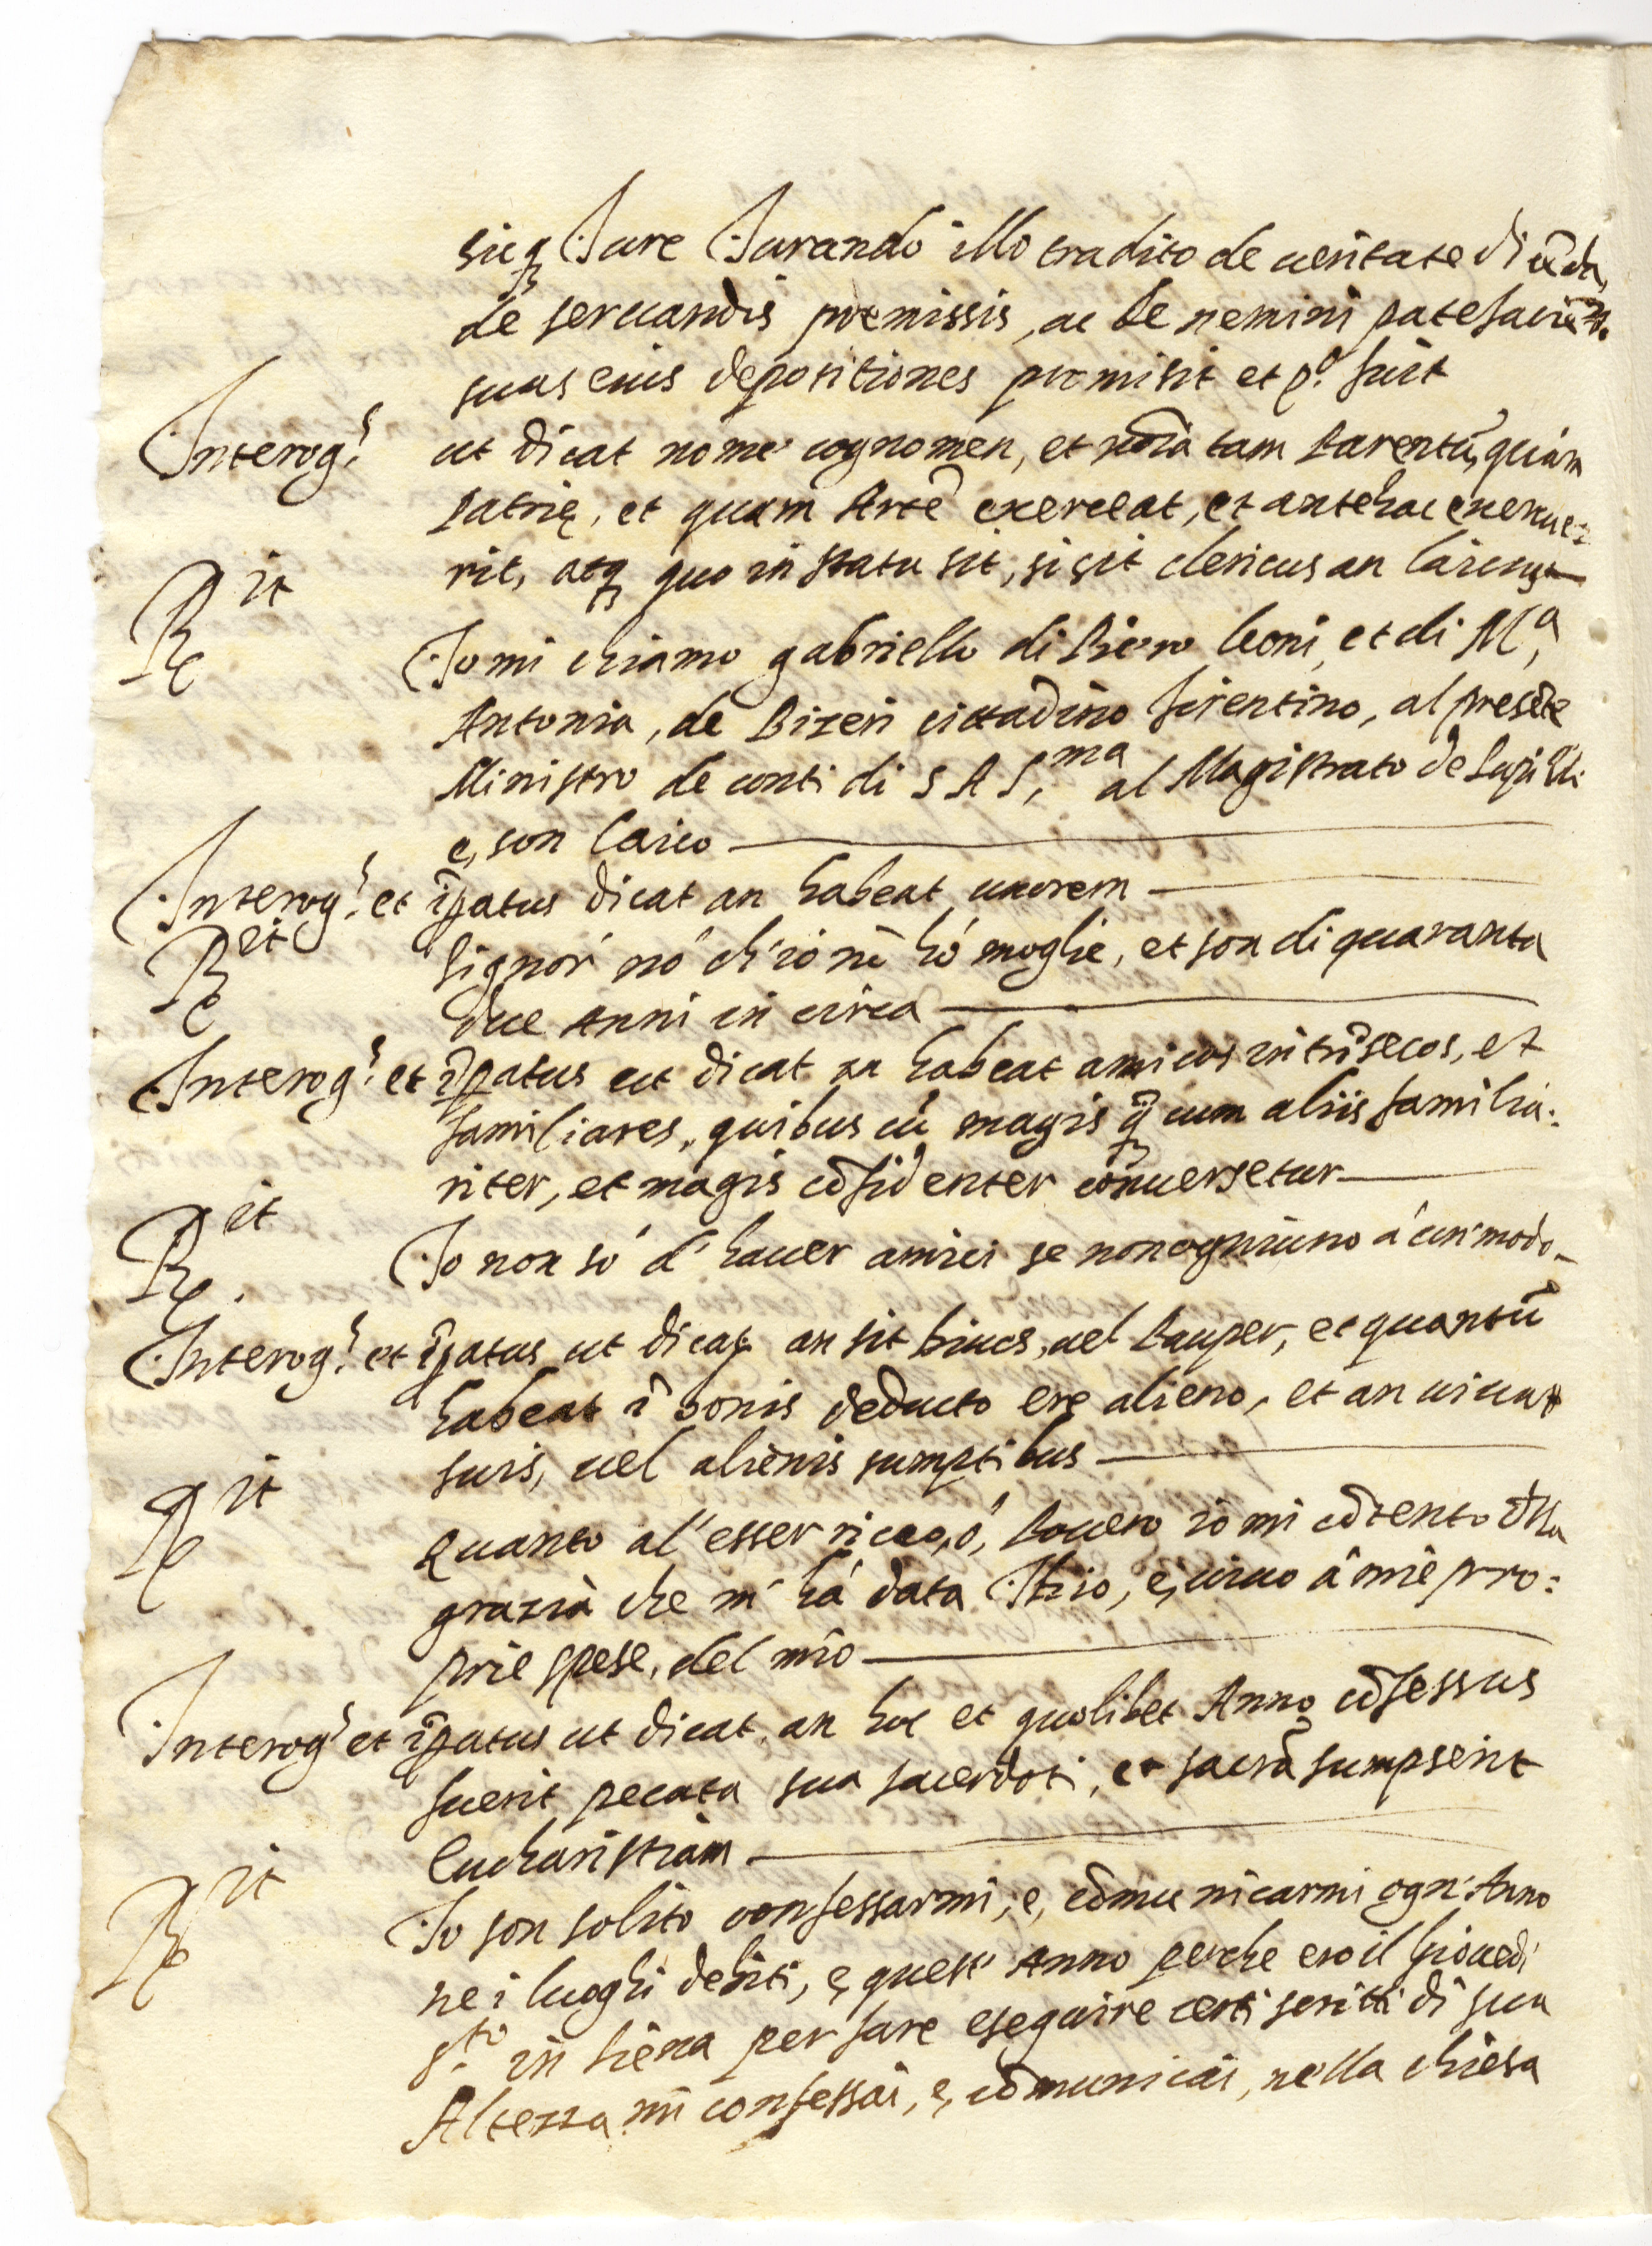 sicq Jure Jurando illo tradito de ueritate dicēda,
de seruandis promissis, ac de nemini patefaciēd.
suas eius depositiones promisit et p.º fuit
Interog.s ut dicat nomē cognomen, et nōīa tam Parentū, quam
Patrię, et quam Artē exerceat, et antehac exercue=
rit, atq quo in statu sit, si sit clericus an laicus
R.it Io mi chiamo gabriello di Piero leoni, et di M.a
Antonia, de Bizeri cittadino fiorentino, al presēte
Ministro de conti di S A S.ma al Magistrato de Pupilli
e, son laico
Interog.s et īpatus dicat an habeat uxorem
R.it Signor nò ch'io nō hò moglie, et son di quaranta
due Anni in circa
Interog.s et īpatus ut dicat an habeat amicos intrīsecos, et
familiares, quibus cū magis q̄ cum aliis familia:
riter, et magis cōfidenter conuersetur
R.it Io non sò d'hauer amici se non ogniuno à un' modo
Interog.s et īpatus ut dicat an sit diues, uel Pauper, et quantū
habeat ī bonis deducto ere alieno, et an uiuat
suis, uel alienis sumptibus
R.it Quanto al' esser ricco, ò, Pouero io mi cōtento dlla
grazia che m' hà data Iddio, e, uiuo à mie pro:
prie spese, del mio
Interog.s et īpatus ut dicat. an hoc et quolibet Anno cōfessus
fuerit pecata sua sacerdoti, et sacrā sumpserit
Eucharistiam
R.it Io son solito confessarmi, e, cōmunicarmi ogn' Anno
ne i luoghi debiti, e, quest' Anno perche ero il giouedi
s.to in Siena per fare eseguire certi scritti di sua
Altezza mi confessai, e, cōmunicai, nella chiesa